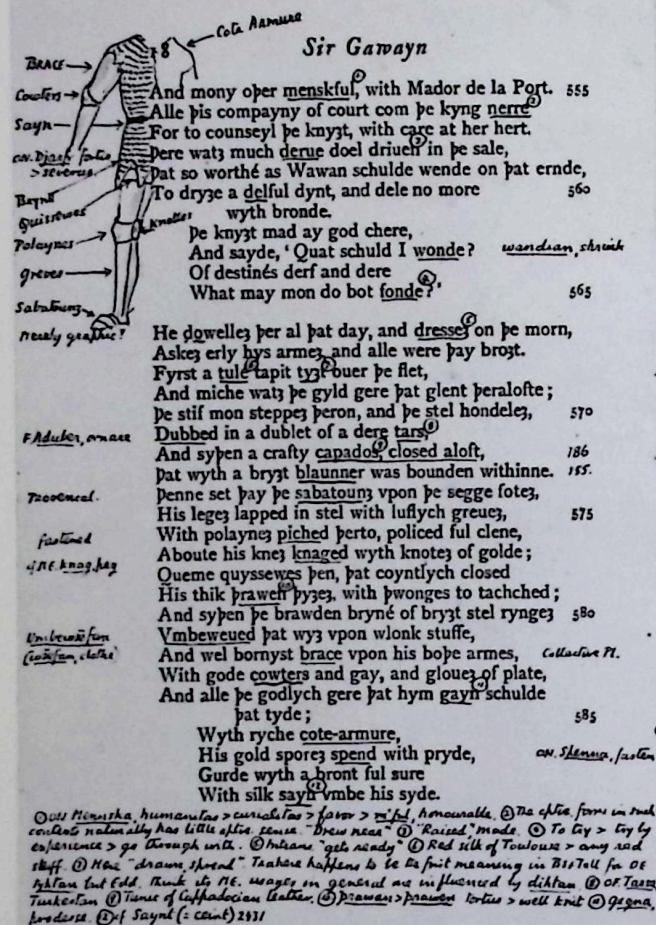 Cote Armure
Sir Gawayn
BRACE
And mony oþer menskful, with Mador de la Port. 555
Cowters
Alle þis compayny of court com þe kyng nerre
Sayn
For to counseyl þe knyȝt, with care at her hert.
Þere watȝ much derue doel driuen in þe sale,
O.N. Djarfr fortis
Þat so worthé as Wawan schulde wende on þat ernde,
> severus.
To dryȝe a delful dynt, and dele no more 560
Bryné
wyth bronde.
Quissewes
Knottes
Þe knyȝt mad ay god chere,
Polaynes
And sayde, 'Quat schuld I wonde? wandian, shrink
greves
Of destinés derf and dere
What may mon do bot fonde?' 565
Sabatounȝ
merely graphic?
He dowelleȝ þer al þat day, and dresseȝ on þe morn,
Askeȝ erly hys armeȝ, and alle were þay broȝt.
Fyrst a tulé tapit tyȝt ouer þe flet,
And miche watȝ þe gyld gere þat glent þeralofte;
Þe stif mon steppeȝ þeron, and þe stel hondeleȝ, 570
F. Aduber, ornare
Dubbed in a dublet of a dere tars,
And syþen a crafty capados, closed aloft, 186
Þat wyth a bryȝt blaunner was bounden withinne. 155.
Provencal.
Þenne set þay þe sabatounȝ vpon þe segge foteȝ,
His legeȝ lapped in stel with luflych greueȝ, 575
fastened
With polayneȝ piched þerto, policed ful clene,
cf ME. knag, peg
Aboute his kneȝ knaged wyth knoteȝ of golde;
Queme quyssewes þen, þat coyntlych closed
His thik þrawen þyȝeȝ, with þwonges to tachched;
And syþen þe brawden bryné of bryȝt stel ryngeȝ 580
Vmbeweued þat wyȝ vpon wlonk stuffe,
And wel bornyst brace vpon his boþe armes, Collective Pl.
With gode cowters and gay, and gloueȝ of plate,
And alle þe godlych gere þat hym gayn schulde
þat tyde; 585
Wyth ryche cote-armure,
His gold sporeȝ spend with pryde, O.N. Spenna, fasten
Gurde wyth a bront ful sure
With silk sayn vmbe his syde.
① ON Mennska, humanitas > curialitas > favor > honourable. ② The cptve. form in such
contexts naturally has little cptve. sense. "Drew near" ③ "Raised" made. ④ To try > try by
experience > go through with. ⑤ Intrans "gets ready" ⑥ Red silk of Toulouse > any red
stuff. ⑦ Here "drawn, spread". happens to be its first meaning in for OE
tyhtan but Edd. think its ME. usages in general are influenced by dihtan. ⑧ OF. Tarse
Turkestan ⑨ of Cappadocian leather. ⑩ Þrawan > þrawen tortus > well knit ⑪ Gegna,
prodesse. ⑫ cf Saynt (= ceint) 2431